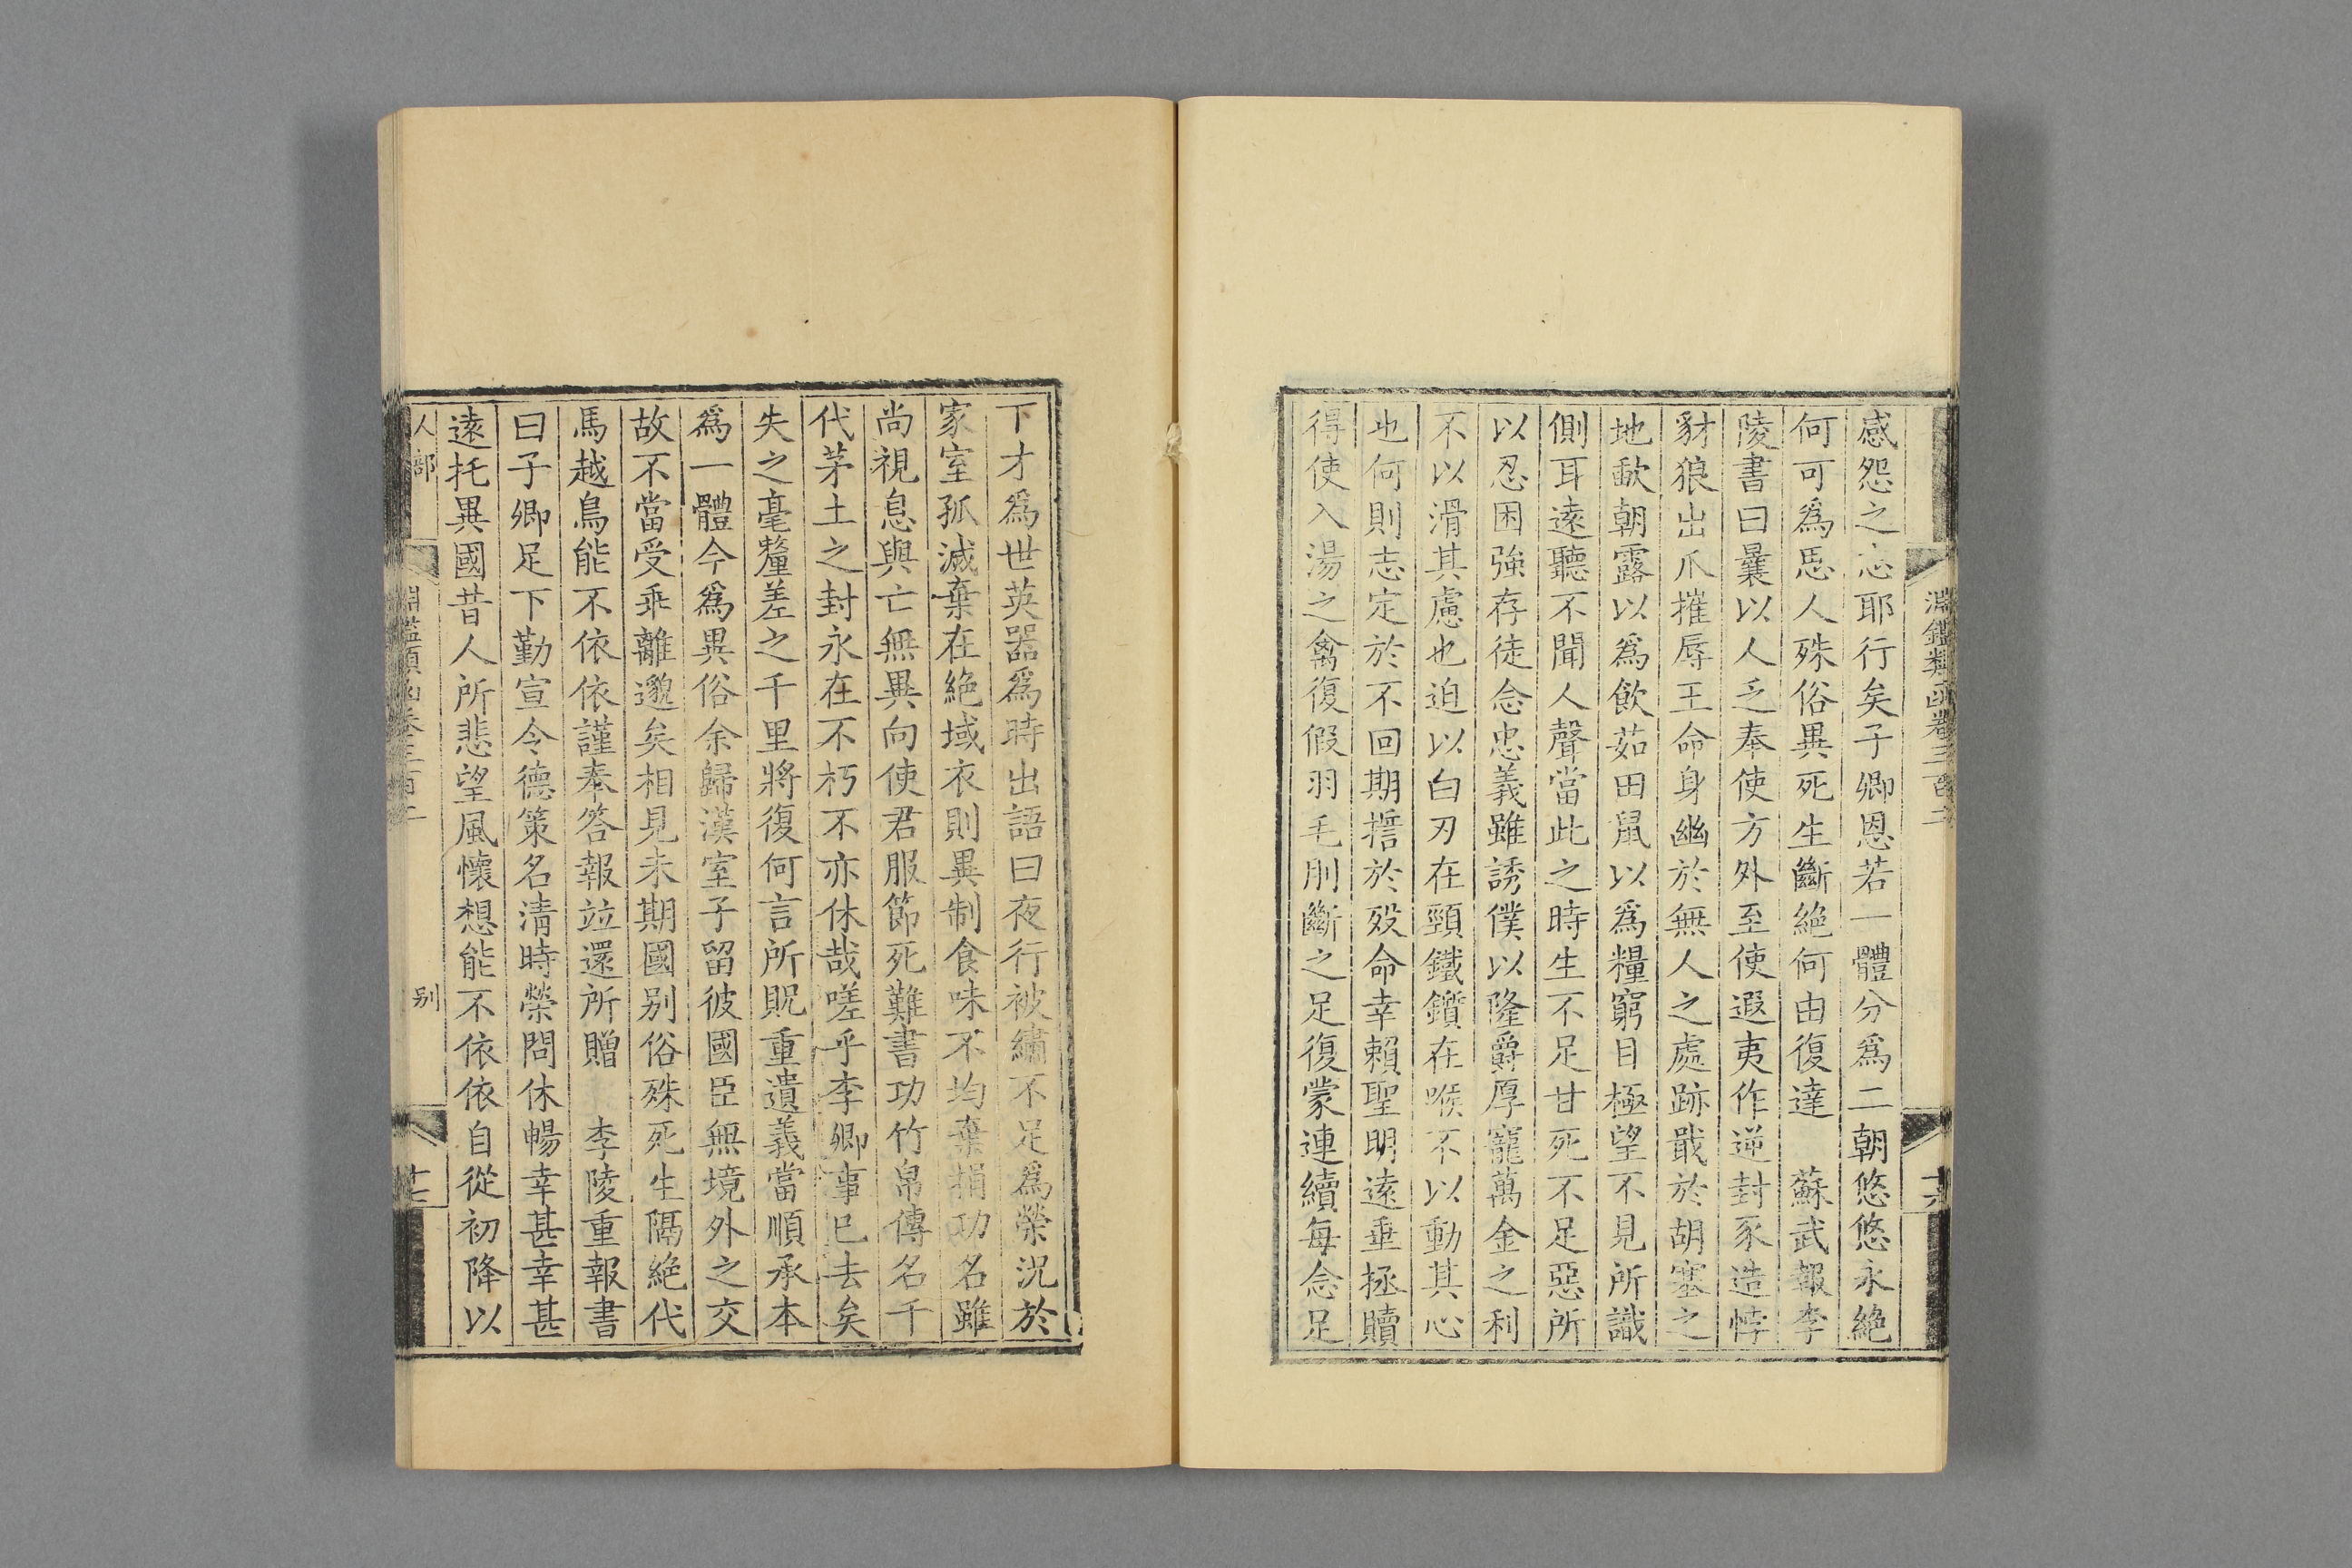 淵鑑類函卷三百二
十六
感怨之志耶行矣子卿恩若一體分爲二朝悠悠永絕
何可爲思人殊俗異死生斷絕何由復達　蘇武報李
陵書曰曩以人乏奉使方外至使遐夷作逆封豕造悖
豺狼出爪摧辱王命身幽於無人之處跡戢於胡塞之
地歃朝露以爲飲茹田鼠以爲糧窮目極望不見所識
側耳遠聽不聞人聲當此之時生不足甘死不足惡所
以忍困強存徒念忠義雖誘僕以隆爵厚寵萬金之利
不以滑其慮也迫以白刃在頸鐵鑕在喉不以動其心
也何則志定於不回期誓於歿命幸賴聖明遠垂拯贖
得使入湯之禽復假羽毛刖斷之足復蒙連續每念足
下才爲世英器爲時出語曰夜行被繡不足爲榮況於
家室孤滅棄在絕域衣則異制食味不均棄捐功名雖
尚視息與亡無異向使君服節死難書功竹帛傳名千
代茅土之封永在不朽不亦休哉嗟乎李卿事已去矣
失之毫釐差之千里將復何言所貺重遺義當順承本
爲一體今爲異俗余歸漢室子留彼國臣無境外之交
故不當受乖離邈矣相見未期國别俗殊死生隔絕代
馬越鳥能不依依謹奉答報竝還所贈　李陵重報書
曰子卿足下勤宣令德策名清時榮問休暢幸甚幸甚
遠托異國昔人所悲望風懷想能不依依自從初降以
人部
淵鑑類函卷三百二
别
十七